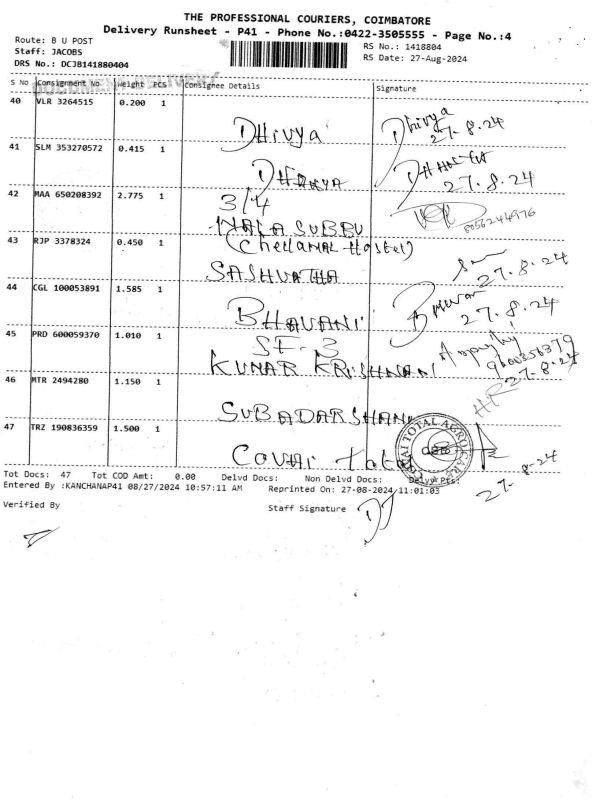 THE PROFESSIONAL COURIERS, COIMBATORE
Delivery Runsheet - P41 - Phone No.:0422-3505555 - Page No.:4
Route: B U POST
RS No.: 1418804
Staff: JACOBS
RS Date: 27-Aug-2024
DRS No.: DCJB141880404
S No Consignment No Weight PCS Consignee Details Signature
40 VLR 3264515 0.200 1
DHivya Dhivya
27.8.24
41 SLM 353270572 0.415 1
27.8.24
42 MAA 650208392 2.775 1
3/4
MALA SUBBU 8056244976
43 RJP 3378324 0.450 1
(Chellamal Hostel)
SASHVATHA 27.8.24
44 CGL 100053891 1.585 1
BHAVANI 27.8.24
45 PRD 600059370 1.010 1
SF-3
KUMAR KRISHNANI 9600356379
27.8.24
46 MTR 2494280 1.150 1
SUBADARSHANI
47 TRZ 190836359 1.500 1
COVAI TOTAL AGRO CARE
Covai Total
27.8.24
Tot Docs: 47 Tot COD Amt: 0.00 Delvd Docs: Non Delvd Docs: Delvr Pts:
Entered By :KANCHANAP41 08/27/2024 10:57:11 AM Reprinted On: 27-08-2024 11:01:03
Verified By Staff Signature